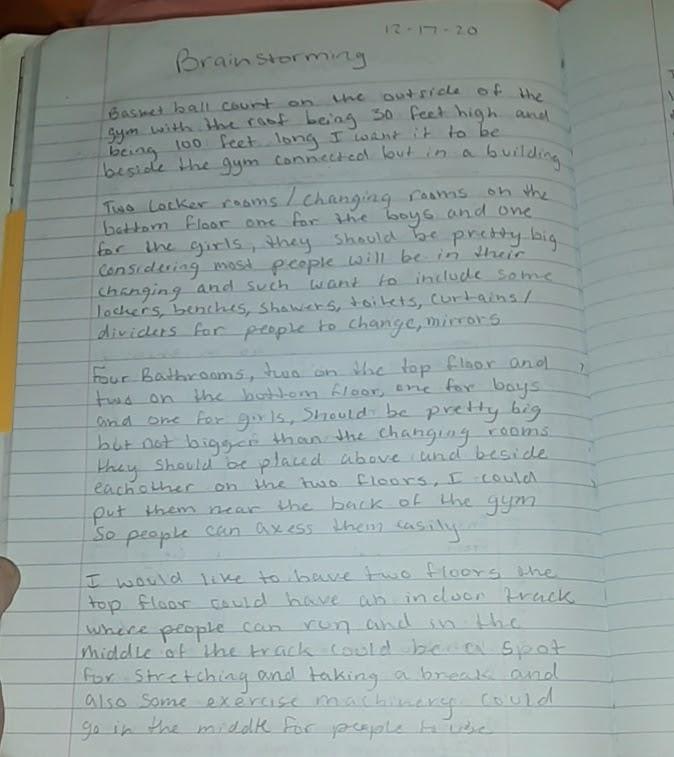 12-17-20
Brainstorming
Basket ball court on the outside of the
gym with the roof being 30 feet high and
being 100 feet long I want it to be
beside the gym connected but in a building
Two Locker rooms / Changing rooms on the
bottom floor one for the boys and one
for the girls, they should be pretty big
considering most people will be in their
changing and such want to include some
lockers, benches, showers, toilets, curtains /
dividers for people to change, mirrors
Four Bathrooms, two on the top floor and
two on the bottom floor, one for boys
and one for girls, Should be pretty big
but not bigger than the changing rooms
they should be placed above and beside
eachother on the two floors, I could
put them near the back of the gym
So people can axess them easily
I would like to have two floors the
top floor could have an indoor track
where people can run and in the
middle of the track could be a spot
for stretching and taking a break and
also some exercise machinery could
go in the middle for people to use